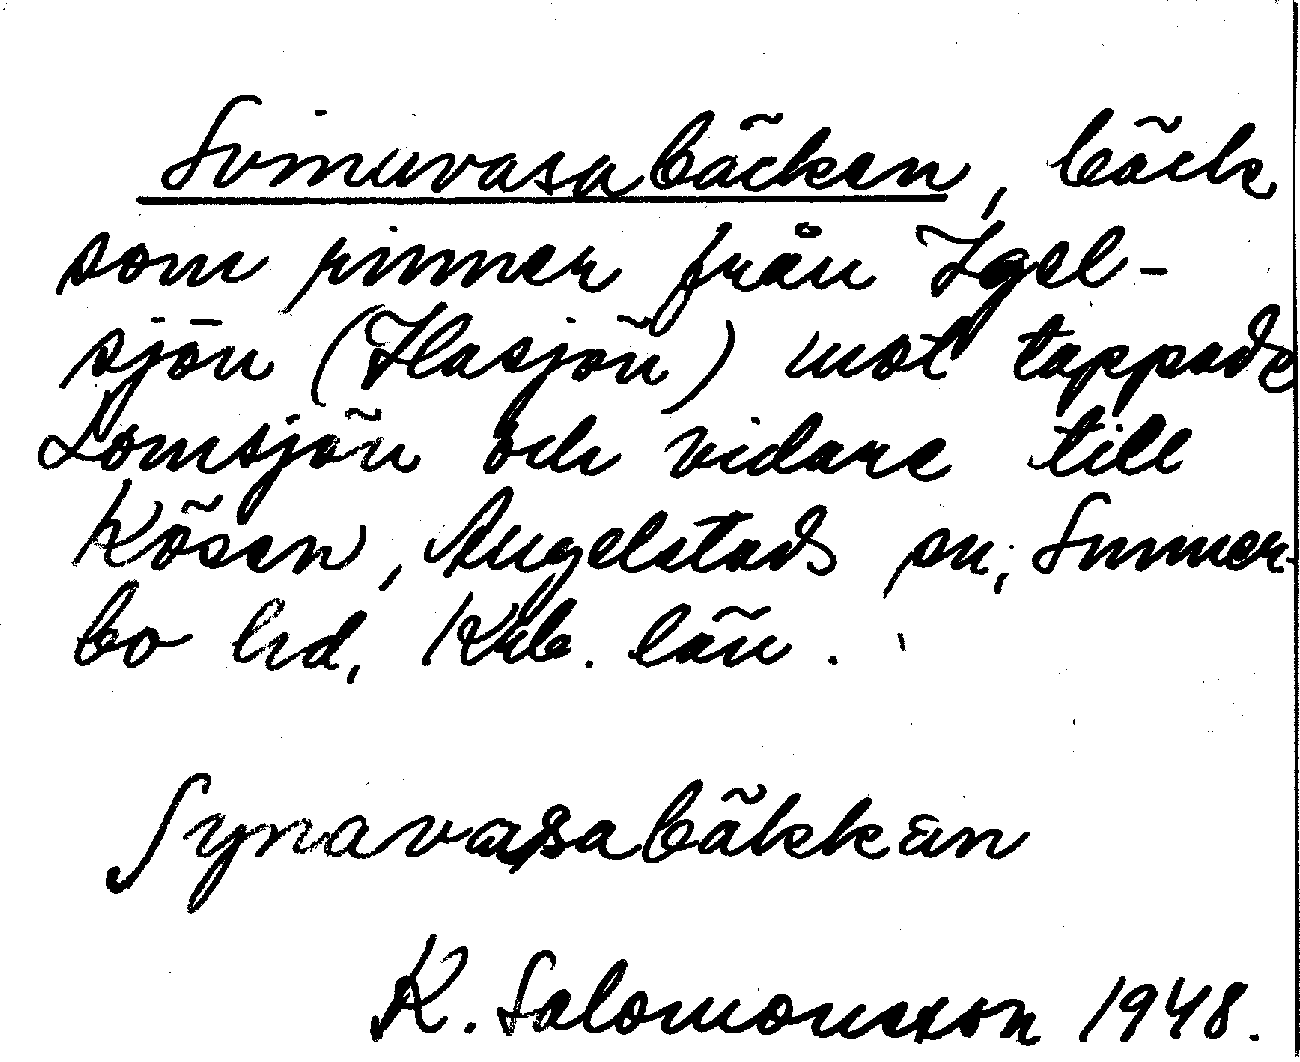 Svinavasabäcken, bäck
som rinner från Igel-
sjön (Ilasjön) mot tappade
Lomsjön och vidare till
Kösen, Angelstads sn, Sunner-
bo hd, Krb. län.
Synavasabäkkän
K. Salomonsson 1948.